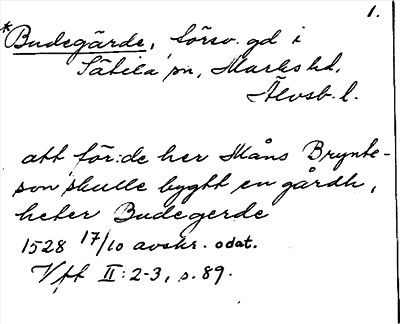 1.
*Budegärde, försv. gd i
Sätila sn, Marks hd,
Älvsb. l.
att för:de her Måns Brynte-
son skulle bygtt en gårdh,
heter Budegerde
1528 17/10 avskr. odat.
Vff II:2-3, s. 89.